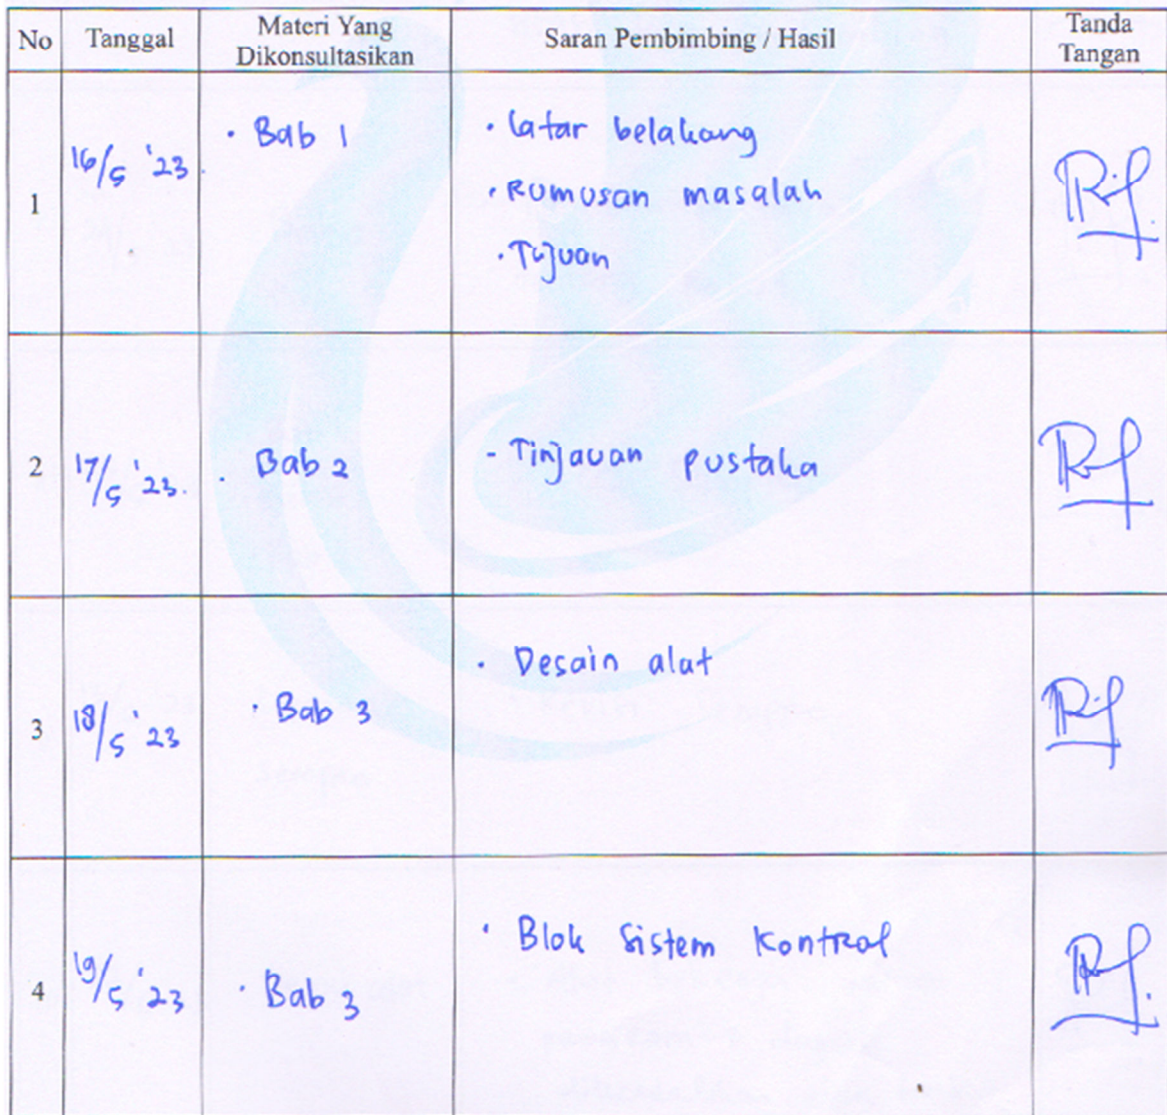 No Tanggal Materi Yang Dikonsultasikan Saran Pembimbing / Hasil Tanda Tangan
1 16/5 '23 · Bab 1 · latar belakang
· Rumusan masalah
· Tujuan
2 17/5 '23. · Bab 2 - Tinjauan pustaka
3 18/5 '23 · Bab 3 · Desain alat
4 19/5 '23 · Bab 3 · Blok Sistem Kontrol